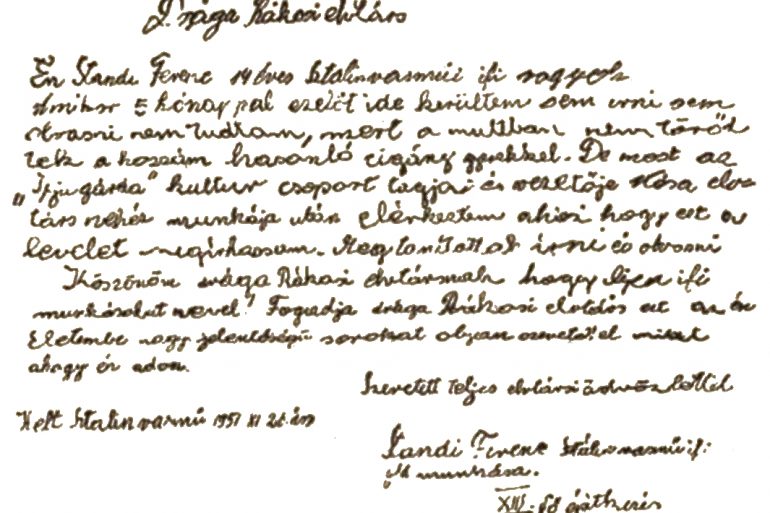 Drága Rákosi elvtárs
Én Standi Ferenc 14 éves Sztalinvasmüi ifi vagyok
Amikor 5 hónappal ezelőt ide kerültem sem irni sem
olvasni nem tudtam, mert a multban nem törőd
tek a hozzám hasonló cigány gyerekkel. De most az
"Ifju gárda" kultur csoport tagjai és vezetője Kósa elv
társ nehéz munkája után elérkeztem ahoz hogy ezt a
levelet megirhassam. Megtanitottak irni és olvasni
Köszönöm drága Rákosi elvtársnak hogy ilyen ifi
munkásokat nevel! Fogadja drága Rákosi elvtárs ezt az én
életembe nagy jelentőségű sorokat olyan szeretettel mint
ahogy én adom.
Szeretett teljes elvtársi üdvözlettel
Kelt Sztalinvasmű 1951 XI 21.én
Standi Ferenc Sztálinvasmű ifi:
munkása.
XIV.